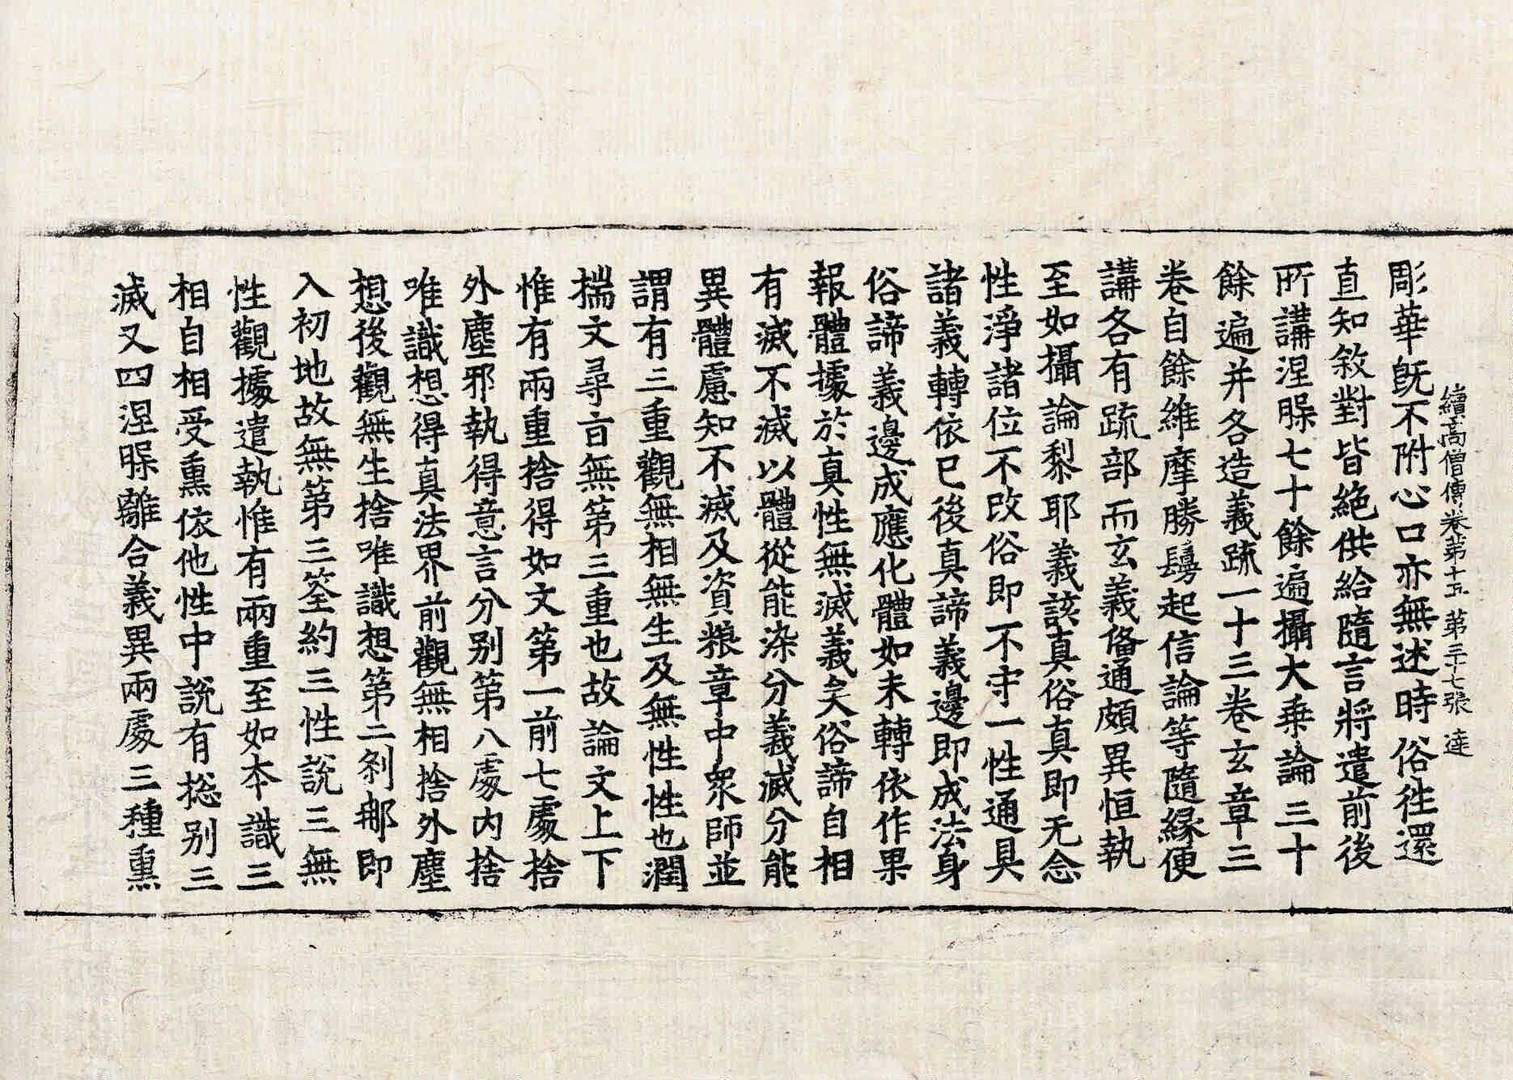 續高僧傳卷第十五 第三十七張 達
彫華旣不附心口亦無述時俗徃還
直知敘對皆絶供給隨言將遣前後
所講涅槃七十餘遍攝大乗論三十
餘遍并各造義疏一十三卷玄章三
卷自餘維摩勝鬘起信論等隨緣便
講各有疏部而玄義俻通頗異恒執
至如攝論黎耶義該真俗真即无念
性淨諸位不改俗即不守一性通具
諸義轉依已後真諦義邊即成法身
俗諦義邊成應化體如未轉依作果
報體據於真性無滅義矣俗諦自相
有滅不滅以體從能染分義滅分能
異體慮知不滅及資粮章中衆師並
謂有三重觀無相無生及無性性也潤
揣文尋旨無第三重也故論文上下
惟有兩重捨得如文第一前七處捨
外塵邪執得意言分别第八處内捨
唯識想得真法界前觀無相捨外塵
想後觀無生捨唯識想第二刹那即
入初地故無第三筌約三性說三無
性觀據遣執惟有兩重至如本識三
相自相受熏依他性中說有揔别三
滅又四涅槃離合義異兩處三種熏